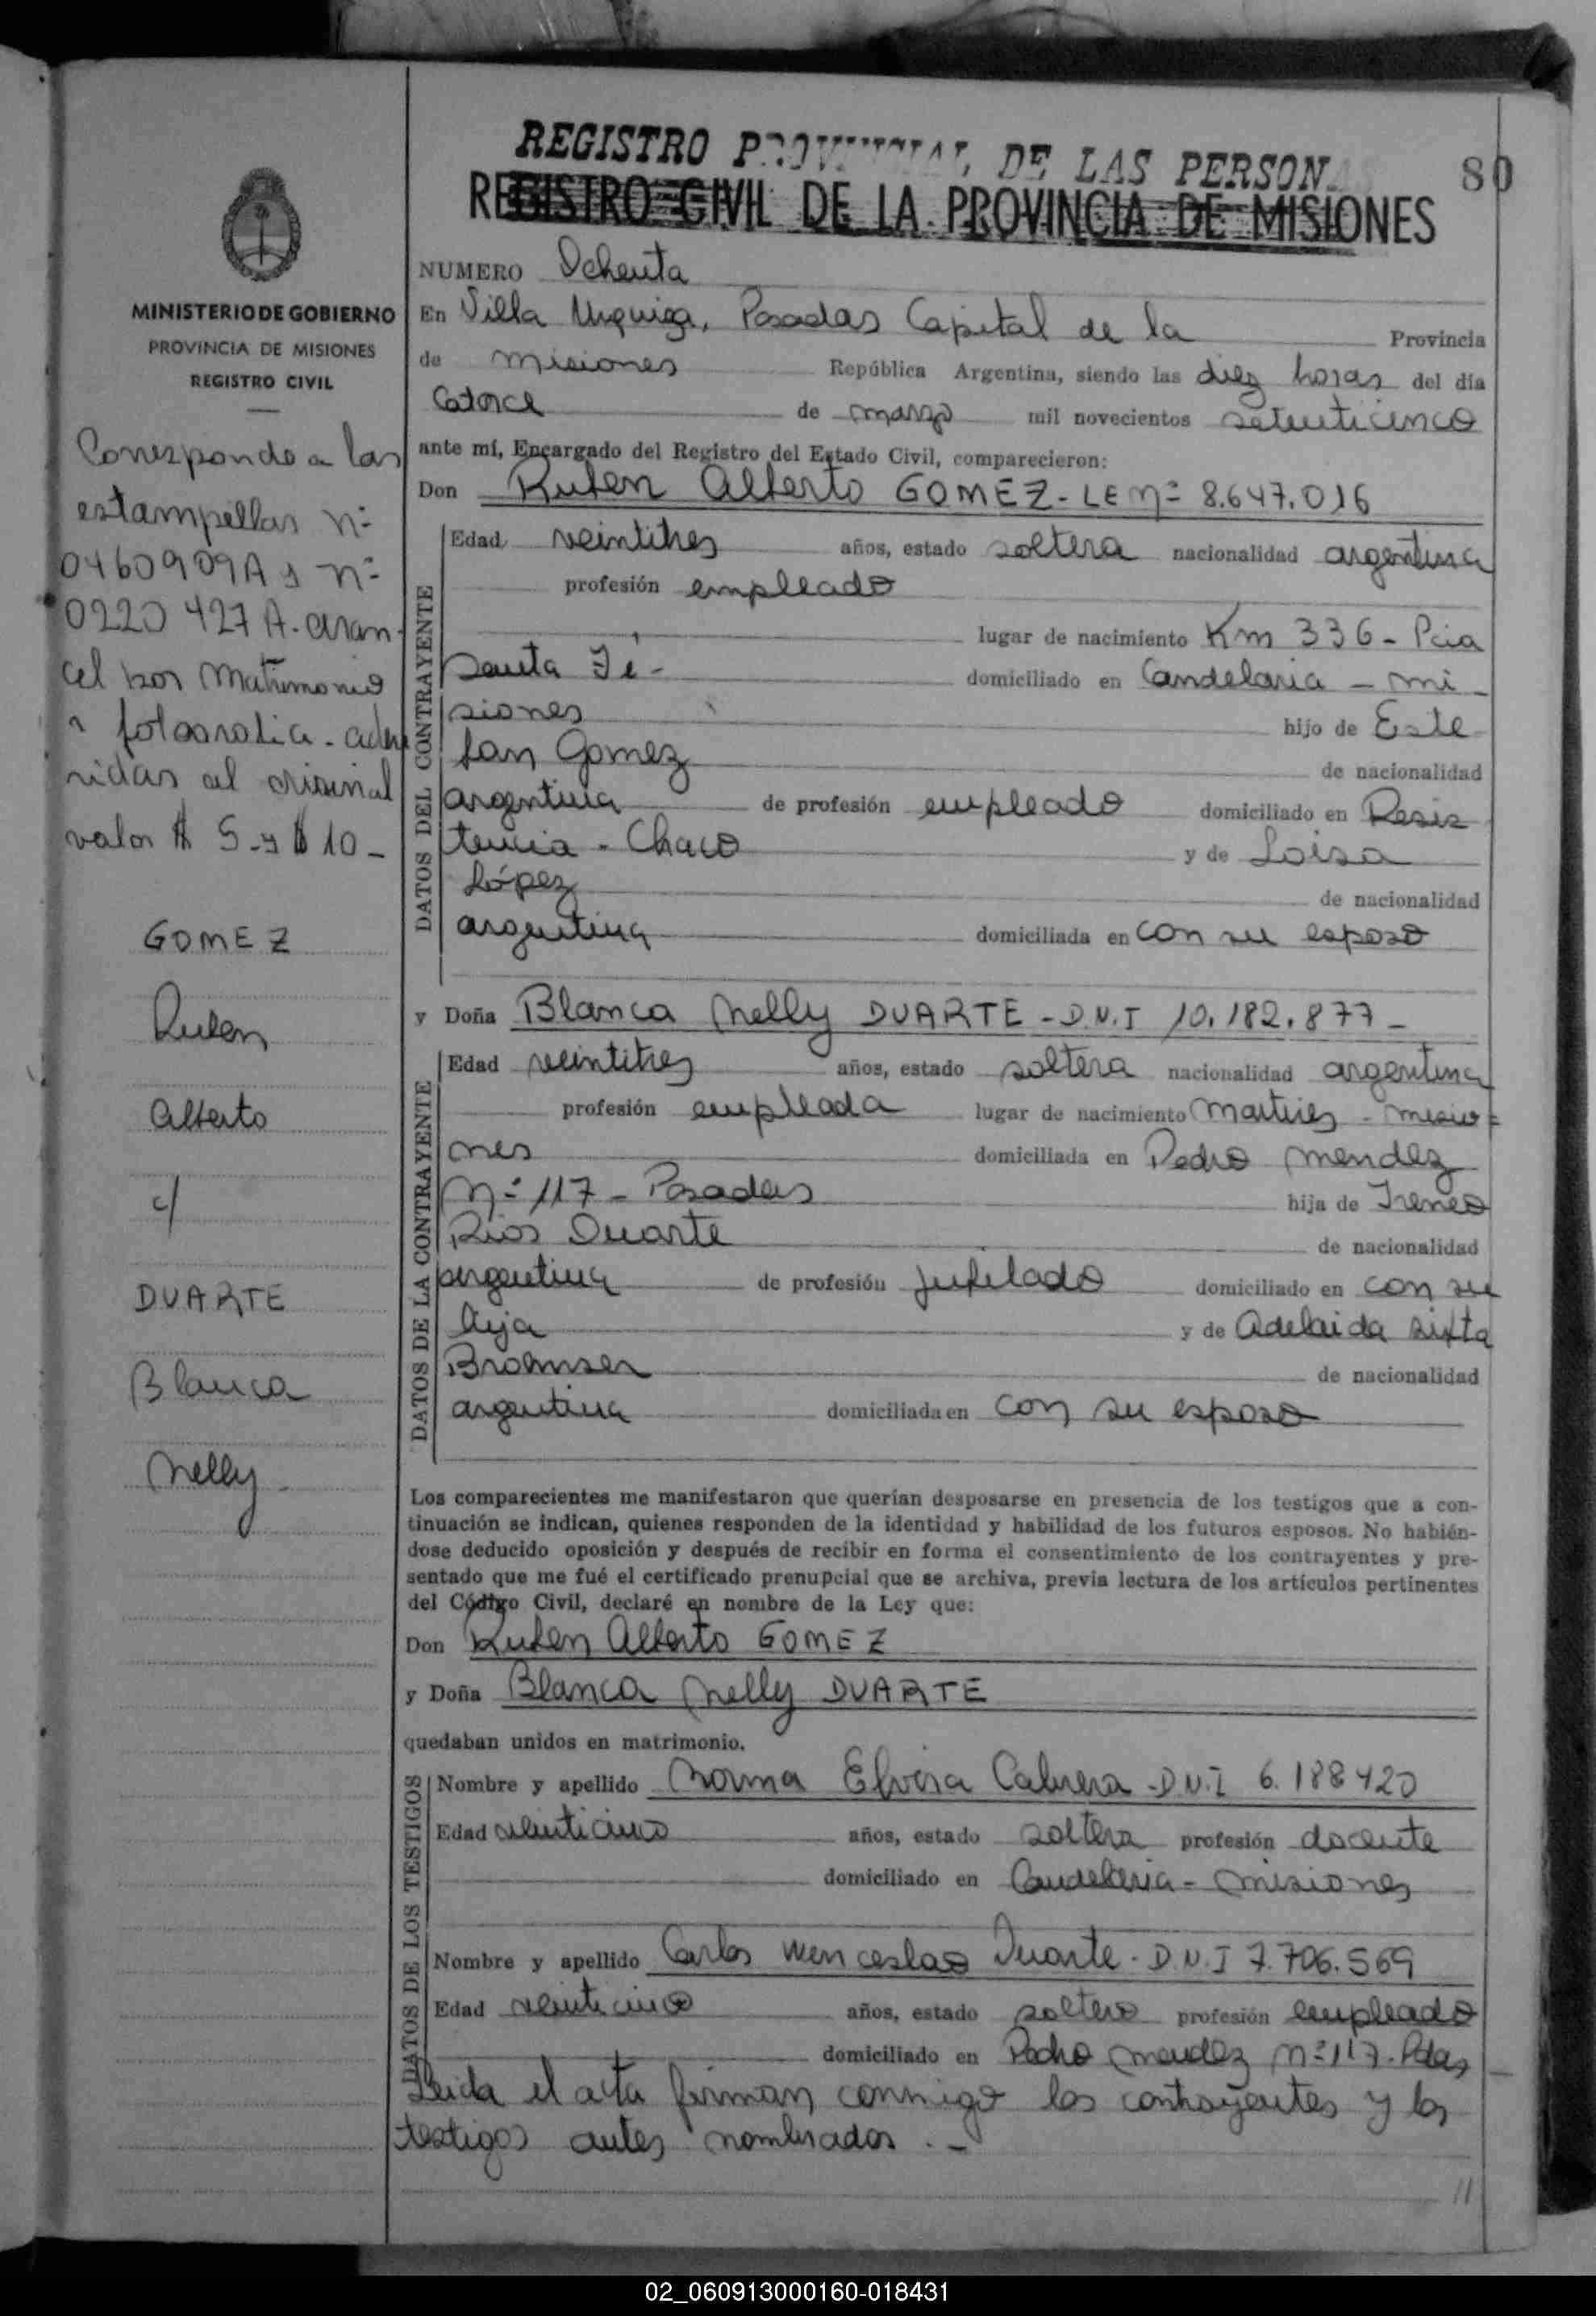 REGISTRO PROVINCIAL DE LAS PERSONAS
80
REGISTRO CIVIL DE LA PROVINCIA DE MISIONES
MINISTERIO DE GOBIERNO
PROVINCIA DE MISIONES
REGISTRO CIVIL
Corresponde a las
estampillas nº
0460909A y nº
0220427A. aran-
cel por Matrimonio
y fotocopia. adhe
ridas al original
valor $ 5-y $ 10-
GOMEZ
Ruben
Alberto
c/
DUARTE
Blanca
Nelly
NUMERO Ochenta
En Villa Urquiza, Posadas Capital de la Provincia
de Misiones República Argentina, siendo las diez horas del día
Catorce de marzo mil novecientos setenticinco
ante mí, Encargado del Registro del Estado Civil, comparecieron:
Don Ruben Alberto GOMEZ-LE nº 8.647.016
DATOS DEL CONTRAYENTE
Edad veintitres años, estado soltera nacionalidad argentina
profesión empleado
lugar de nacimiento Km 336- Pcia
Santa Fé- domiciliado en Candelaria - Mi
siones hijo de Este
ban Gomez de nacionalidad
argentina de profesión empleado domiciliado en Resis
tencia - Chaco y de Loisa
López de nacionalidad
argentina domiciliada en con su esposo
y Doña Blanca Nelly DUARTE - D.N.I 10.182.877-
DATOS DE LA CONTRAYENTE
Edad veintitres años, estado soltera nacionalidad argentina
profesión empleada lugar de nacimiento Martires - Misio=
nes domiciliada en Pedro Mendez
Nº 117 - Posadas hija de Ireneo
Rios Duarte de nacionalidad
argentina de profesión jubilado domiciliado en con su
hija y de Adelaida Sixta
de nacionalidad
argentina domiciliada en con su esposo
Los comparecientes me manifestaron que querían desposarse en presencia de los testigos que a con-
tinuación se indican, quienes responden de la identidad y habilidad de los futuros esposos. No habién-
dose deducido oposición y después de recibir en forma el consentimiento de los contrayentes y pre-
sentado que me fué el certificado prenupcial que se archiva, previa lectura de los artículos pertinentes
del Código Civil, declaré en nombre de la Ley que:
Don Ruben Alberto GOMEZ
y Doña Blanca Nelly DUARTE
quedaban unidos en matrimonio.
DATOS DE LOS TESTIGOS
Nombre y apellido Norma Elvira Cabrera - D.N.I 6.188420
Edad veinticinco años, estado soltera profesión docente
domiciliado en Candelaria - Misiones
Nombre y apellido Carlos Wenceslao Duarte. D.N.I 7.706.569
Edad veinticinco años, estado soltero profesión empleado
domiciliado en Pedro Mendez Nº 117. Pdas
Leida el acta firman conmigo los contrayentes y los
testigos antes nombrados . -
02_060913000160-018431